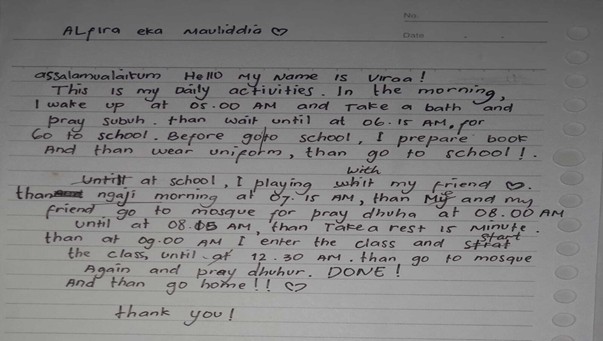 No.
Date
ALfira eka Mauliddia ♡
assalamualaikum Hello My Name is Viraa!
This is my Daily activities. In the morning,
I wake up at 05.00 AM and Take a bath and
pray subuh. than wait until at 06.15 AM, for
Go to school. Before goto school, I prepare book
And than wear uniform, than go to school!.
Untill at school, I playing with my friend ♡.
than ngaji morning at 07.15 AM, than My and my
friend go to mosque for pray dhuha at 08.00 AM
until at 08.15 AM, than Take a rest 15 Minute.
than at 09.00 AM I enter the class and start
the class, until at 12.30 AM. than go to mosque
Again and pray dhuhur. DONE!
And than go home!! ♡
thank you!